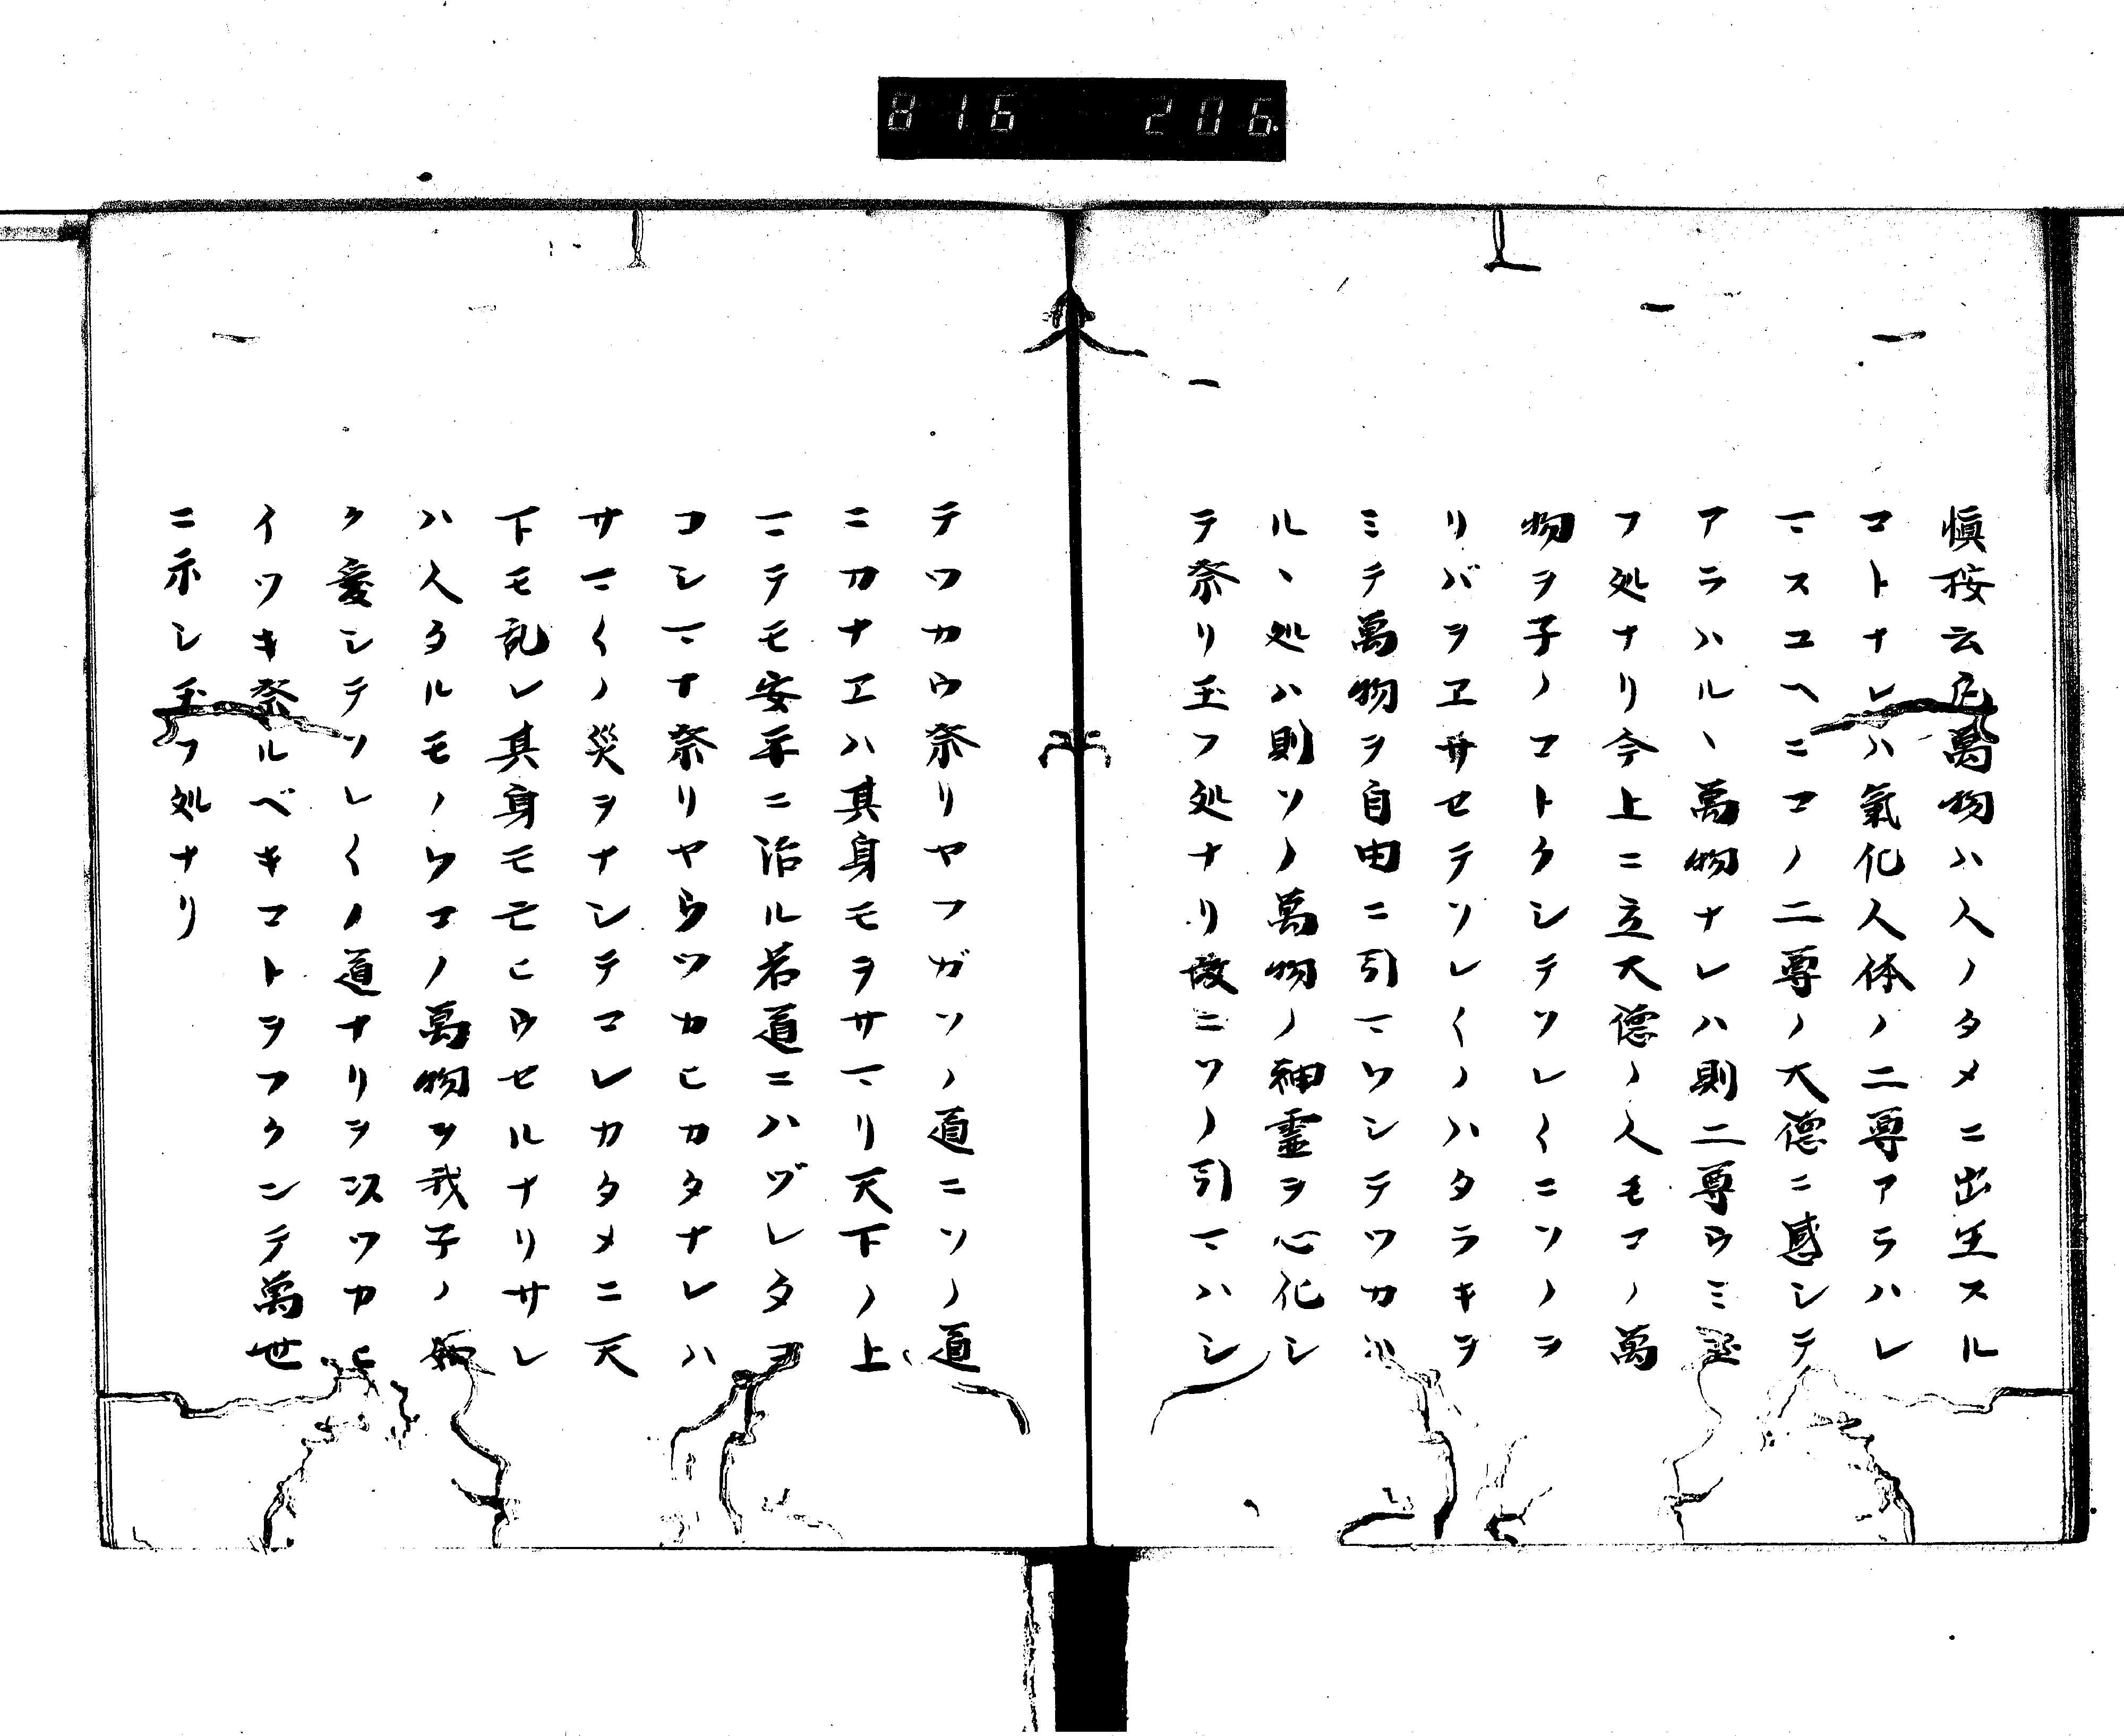 816 206
慎按云凡萬物ハ人ノタメニ出生スル
コトナレハ氣化人体ノ二尊アラハレ
マスユヘニコノ二尊ノ大德ニ感シテ
アラハルヽ萬物ナレハ則二尊ウミ玉
フ処ナリ今上ニ立大德ノ人モコノ萬
物ヲ子ノコトクシテソレ〱ニソノヲ
リバヲヱサセテソレ〱ノハタラキヲ
ミテ萬物ヲ自由ニ引マワシテツカハ
ルヽ処ハ則ソノ萬物ノ神霊ヲ心化シ
テ祭リ玉フ処ナリ故ニソノ引マハシ
テツカウ祭リヤフガソノ道ニソノ道
ニカナヱハ其身モヲサマリ天下ノ上
マテモ安平ニ治ル若道ニハヅレタヲ
コシマナ祭リヤウツカヒカタナレハ
サマ〱ノ災ヲナシテコレカタメニ天
下モ乱レ其身モモヒウセルナリサレ
ハ人タルモノワコノ萬物ヲ我子ノ如
ク愛シテソレ〱ノ道ナリヲ以ツカヒ
イツキ祭ルベキコトヲフクンテ萬世
ニ示シ玉フ処ナリ